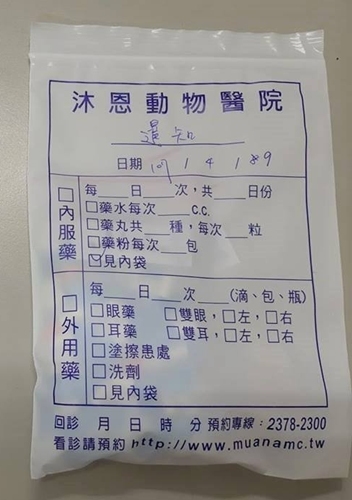 沐恩動物醫院
日期 109 / 4 / 89
每___日___次，共___日份
□內服藥
□藥水每次___C.C.
□藥丸共___種，每次___粒
□藥粉每次___包
☑見內袋
每___日___次___(滴、包、瓶)
□外用藥
□眼藥 □雙眼，□左，□右
□耳藥 □雙耳，□左，□右
□塗擦患處
□洗劑
□見內袋
回診 月 日 時 分 預約專線：2378-2300
看診請預約 http://www.muanamc.tw